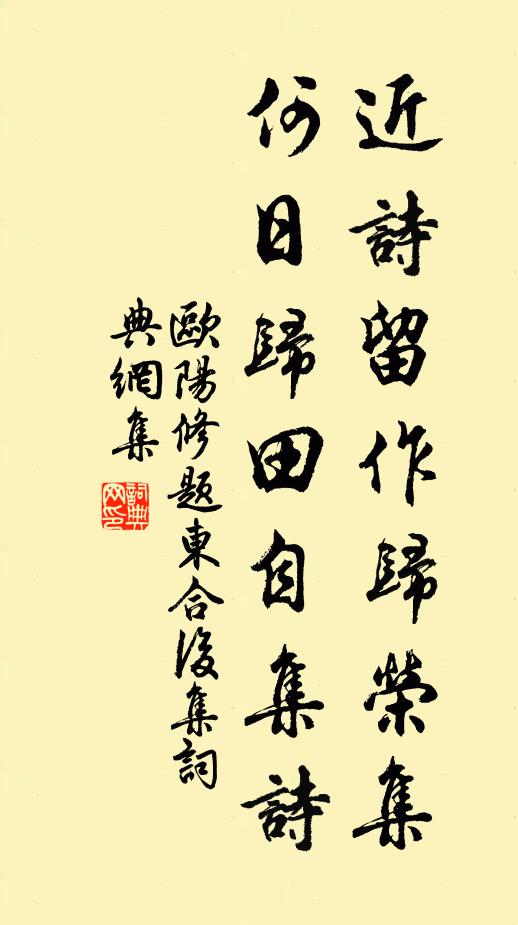 近詩留作歸榮集
何日歸田自集詩
歐陽修題東合後集詞
典網集
詞典
网印